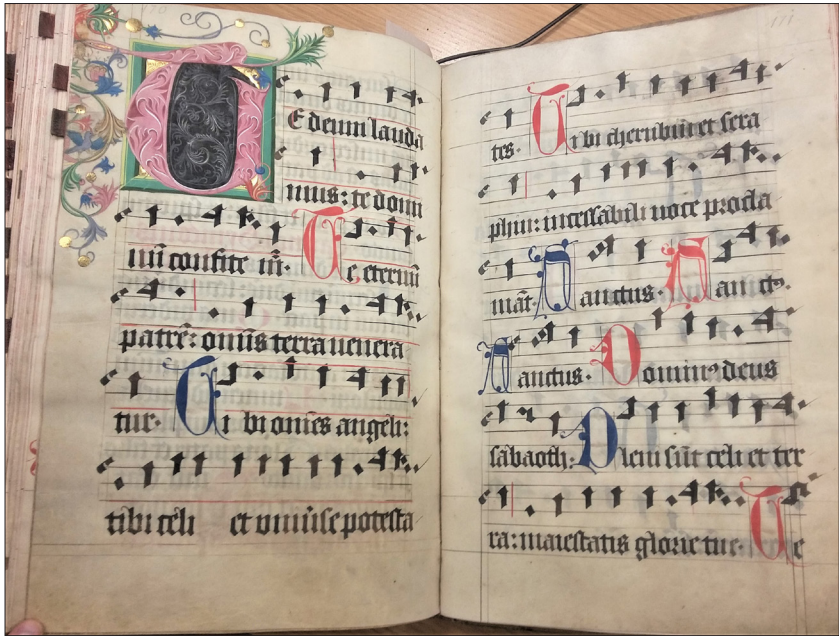 TE deum lauda
mus: te domi
nū confite m̄. Te eternū
patrē: om̄is terra uenera
tur. Ti bi om̄es angeli:
tibi celi et uniu̅se potesta
171
tes. Ti bi cherubin et sera
phin: incessabili uoce procla
māt. Sanctus. Sanctꝰ.
Sanctus. Dominꝰ deus
sabaoth. Pleni sūt celi et ter
ra: maiestatis glorie tue. Te